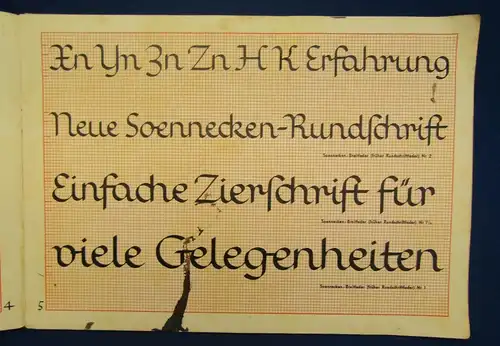 Xn Yn Zn Zn H K Erfahrung
Neue Soennecken-Rundſchrift
Soennecken-Breitfeder (früher Rundschriftfeder) Nr. 2
Einfache Zierſchrift für
Soennecken-Breitfeder (früher Rundschriftfeder) Nr. 1½
viele Gelegenheiten
Soennecken-Breitfeder (früher Rundschriftfeder) Nr. 1
4 5